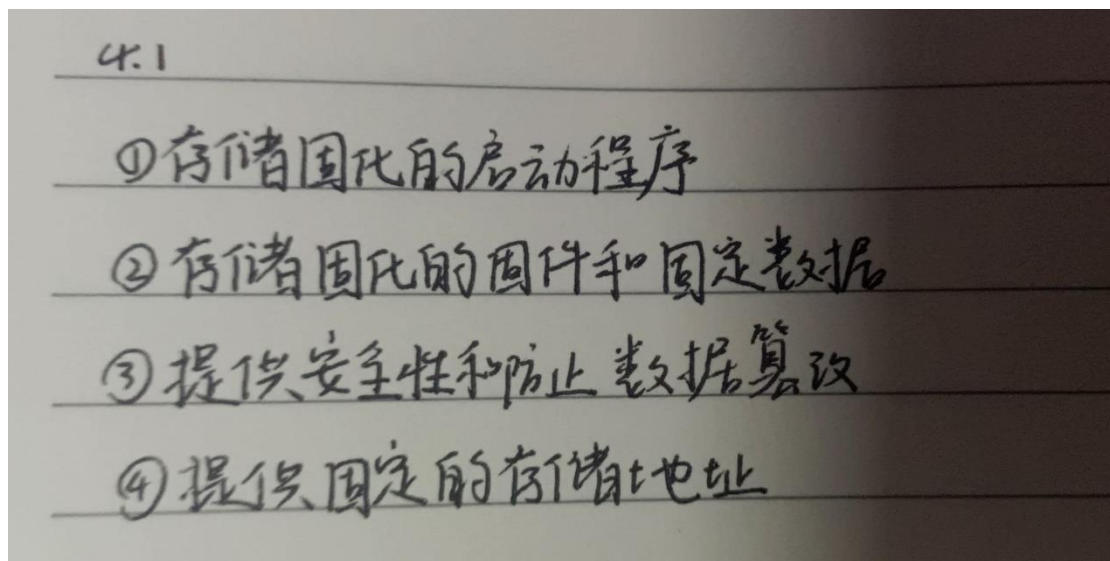 4.1
①存储固化的启动程序
②存储固化的固件和固定数据
③提供安全性和防止数据篡改
④提供固定的存储地址